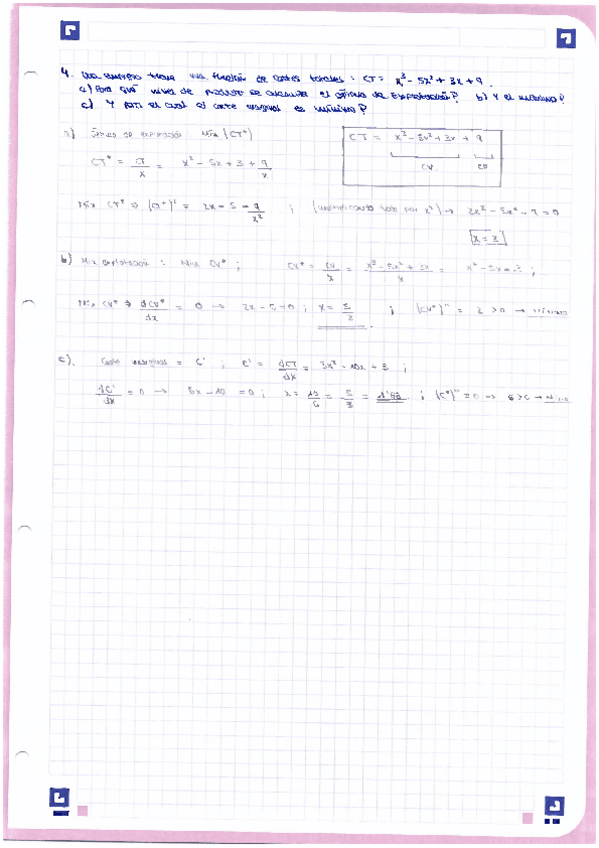 4. Una empresa tiene una función de costes totales: CT = x³ - 5x² + 3x + 9.
a) Para qué nivel de producto se alcanza el óptimo de Explotación? b) Y el mínimo?
c) Y para el cual el coste marginal es mínimo?
a) Óptimo de explotación Mín (CT*)
CT = x³ - 5x² + 3x + 9
CV CF
CT* = CT/x = x² - 5x + 3 + 9/x
Mín CT* ⇒ (CT*)' = 2x - 5 - 9/x² ; (multiplicando todo por x²) → 2x³ - 5x² - 9 = 0
x = 3
b) Mín explotación : Mín CV* ; CV* = CV/x = x³ - 5x² + 3x / x = x² - 5x + 3 ;
Mín CV* ⇒ dCV*/dx = 0 → 2x - 5 = 0 ; x = 5/2 ; (CV*)'' = 2 > 0 → mínimo
c). Coste marginal = C' ; C' = dCT/dx = 3x² - 10x + 3 ;
dC'/dx = 0 → 6x - 10 = 0 ; x = 10/6 = 5/3 = 1'66 . ; → 6 >